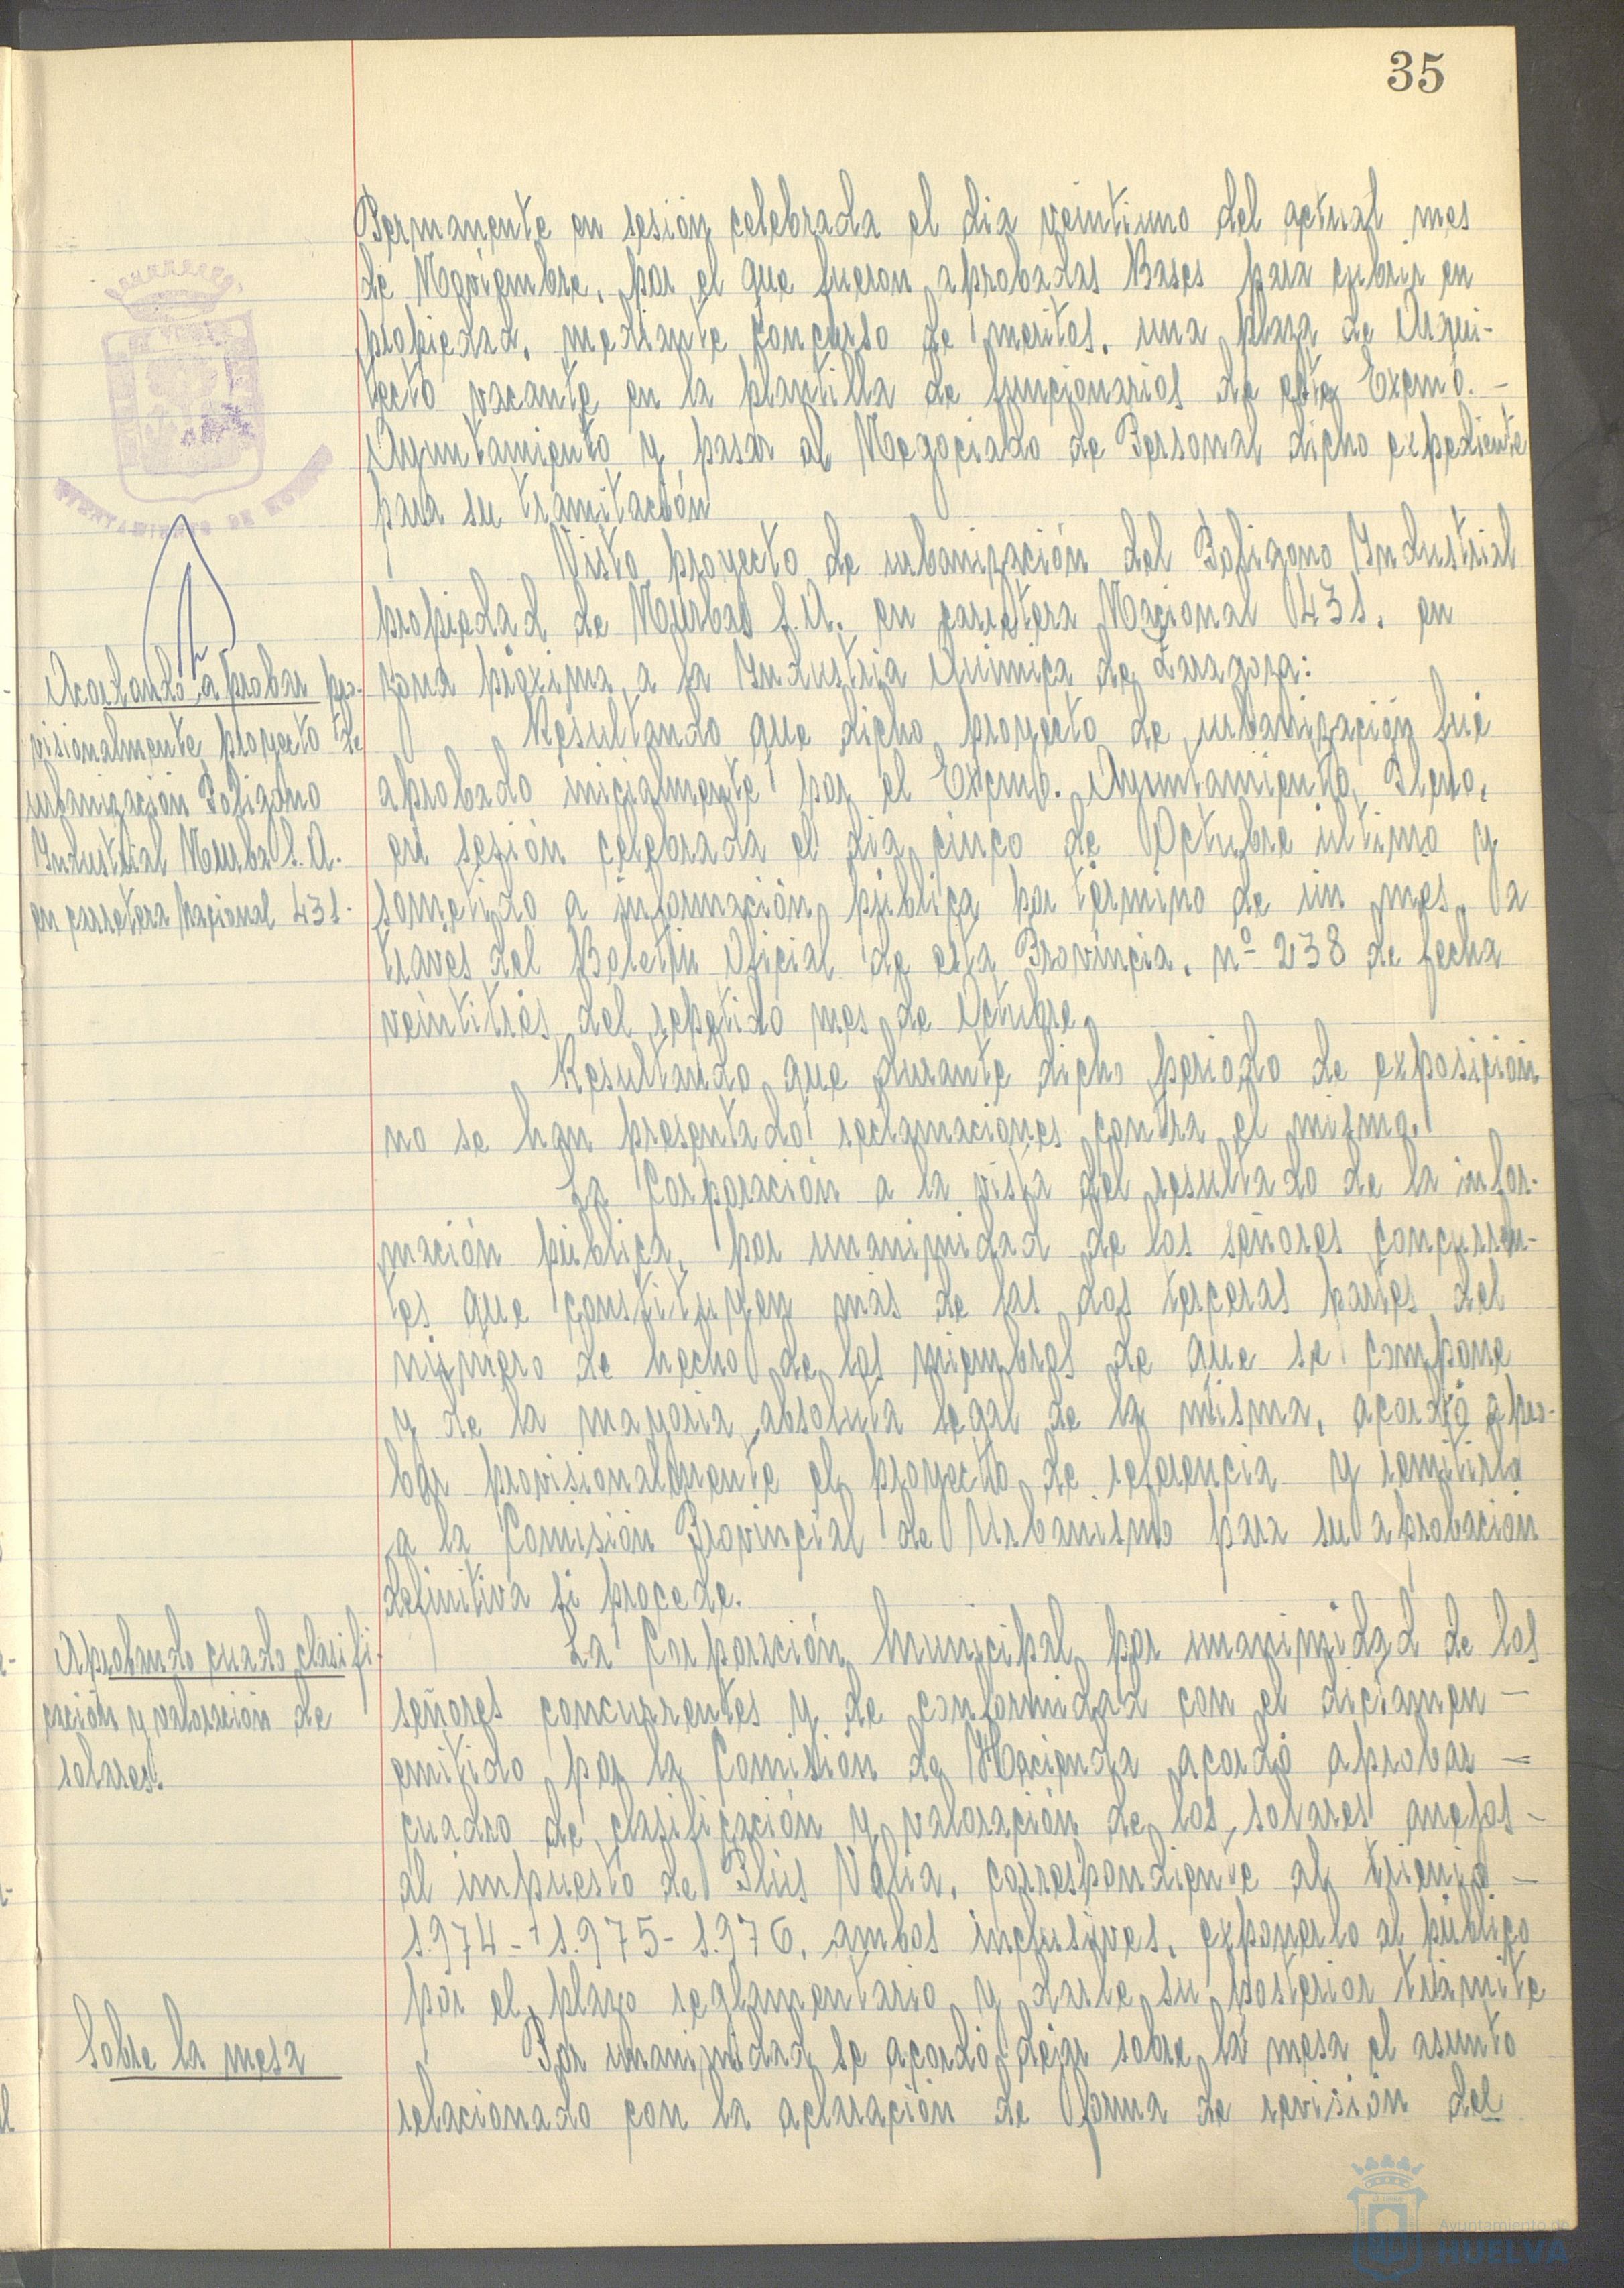 35
Permanente en sesión celebrada el dia veintiuno del actual mes
de Noviembre, por el que fueron aprobadas Bases para cubrir en
propiedad, mediante concurso de meritos, una plaza de Arqui-
tecto vacante en la plantilla de funcionarios de este Excmo. -
Ayuntamiento y pasar al Negociado de Personal dicho expediente
para su tramitación
Visto proyecto de urbanización del Poligono Industrial
propiedad de Naurba S.A. en carretera Nacional 431, en
zona próxima a la Industria Quimica de Zaragoza:
Acordando aprobar pro-
visionalmente proyecto de
urbanización Poligono
Industrial Naurba S.A.
en carretera Nacional 431-
Resultando que dicho proyecto de urbanización fué
aprobado inicialmente por el Excmo. Ayuntamiento Pleno,
en sesión celebrada el dia cinco de Octubre último y
sometido a información pública por término de un mes, a
través del Boletin Oficial de esta Provincia, nº 238 de fecha
veintitrés del repetido mes de Octubre.
Resultando que durante dicho periodo de exposición
no se han presentado reclamaciones contra el mismo.
La Corporación a la vista del resultado de la infor-
mación pública, por unanimidad de los señores concurren-
tes que constituyen más de las dos terceras partes del
número de hecho de los miembros de que se compone
y de la mayoria absoluta legal de la misma, acordó apro-
bar provisionalmente el proyecto de referencia y remitirlo
a la Comisión Provincial de Urbanismo para su aprobación
definitiva si procede.
Aprobando cuadro clasifi-
cación y valoración de
solares.
La Corporación Municipal por unanimidad de los
señores concurrentes y de conformidad con el dictamen -
emitido por la Comisión de Hacienda acordó aprobar -
cuadro de clasificación y valoración de los solares anejos -
al impuesto de Plús Valia, correspondiente al trienio -
1.974 - 1.975 - 1.976, ambos inclusives, exponerlo al público
por el plazo reglamentario y darle su posterior trámite
Sobre la mesa
Por unanimidad se acordó dejar sobre la mesa el asunto
relacionado con la aclaración de forma de revisión del
Ayuntamiento de
HUELVA